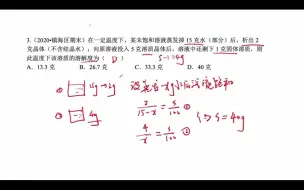 3.(2020•镇海区期末)在一定温度下,某未饱和溶液蒸发掉 15 克水(部分)后,析出 2
克晶体(不含结晶水)、向原溶液投入 5 克溶质晶体后,溶液中还剩下 1 克固体溶质,则
此温度下该溶质的溶解度为( D )
5-1=4g
A.13.3 克 B.26.7 克 C.33.3 克 D.40 克
① 15g→2g
设蒸发 xg水后溶液饱和
2/15-x = s/100 ①
② 4g
4/x = s/100 ②
⇒ s=40g